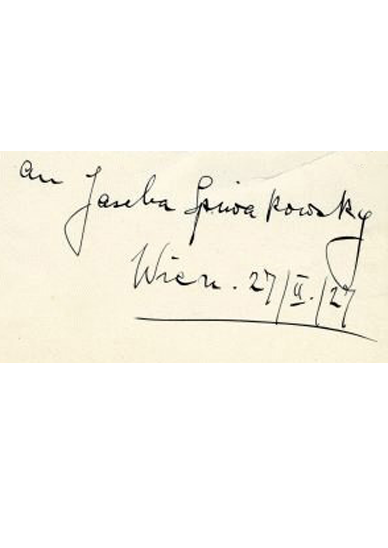 an Jascha Spiwakowsky
Wien. 27/II./27